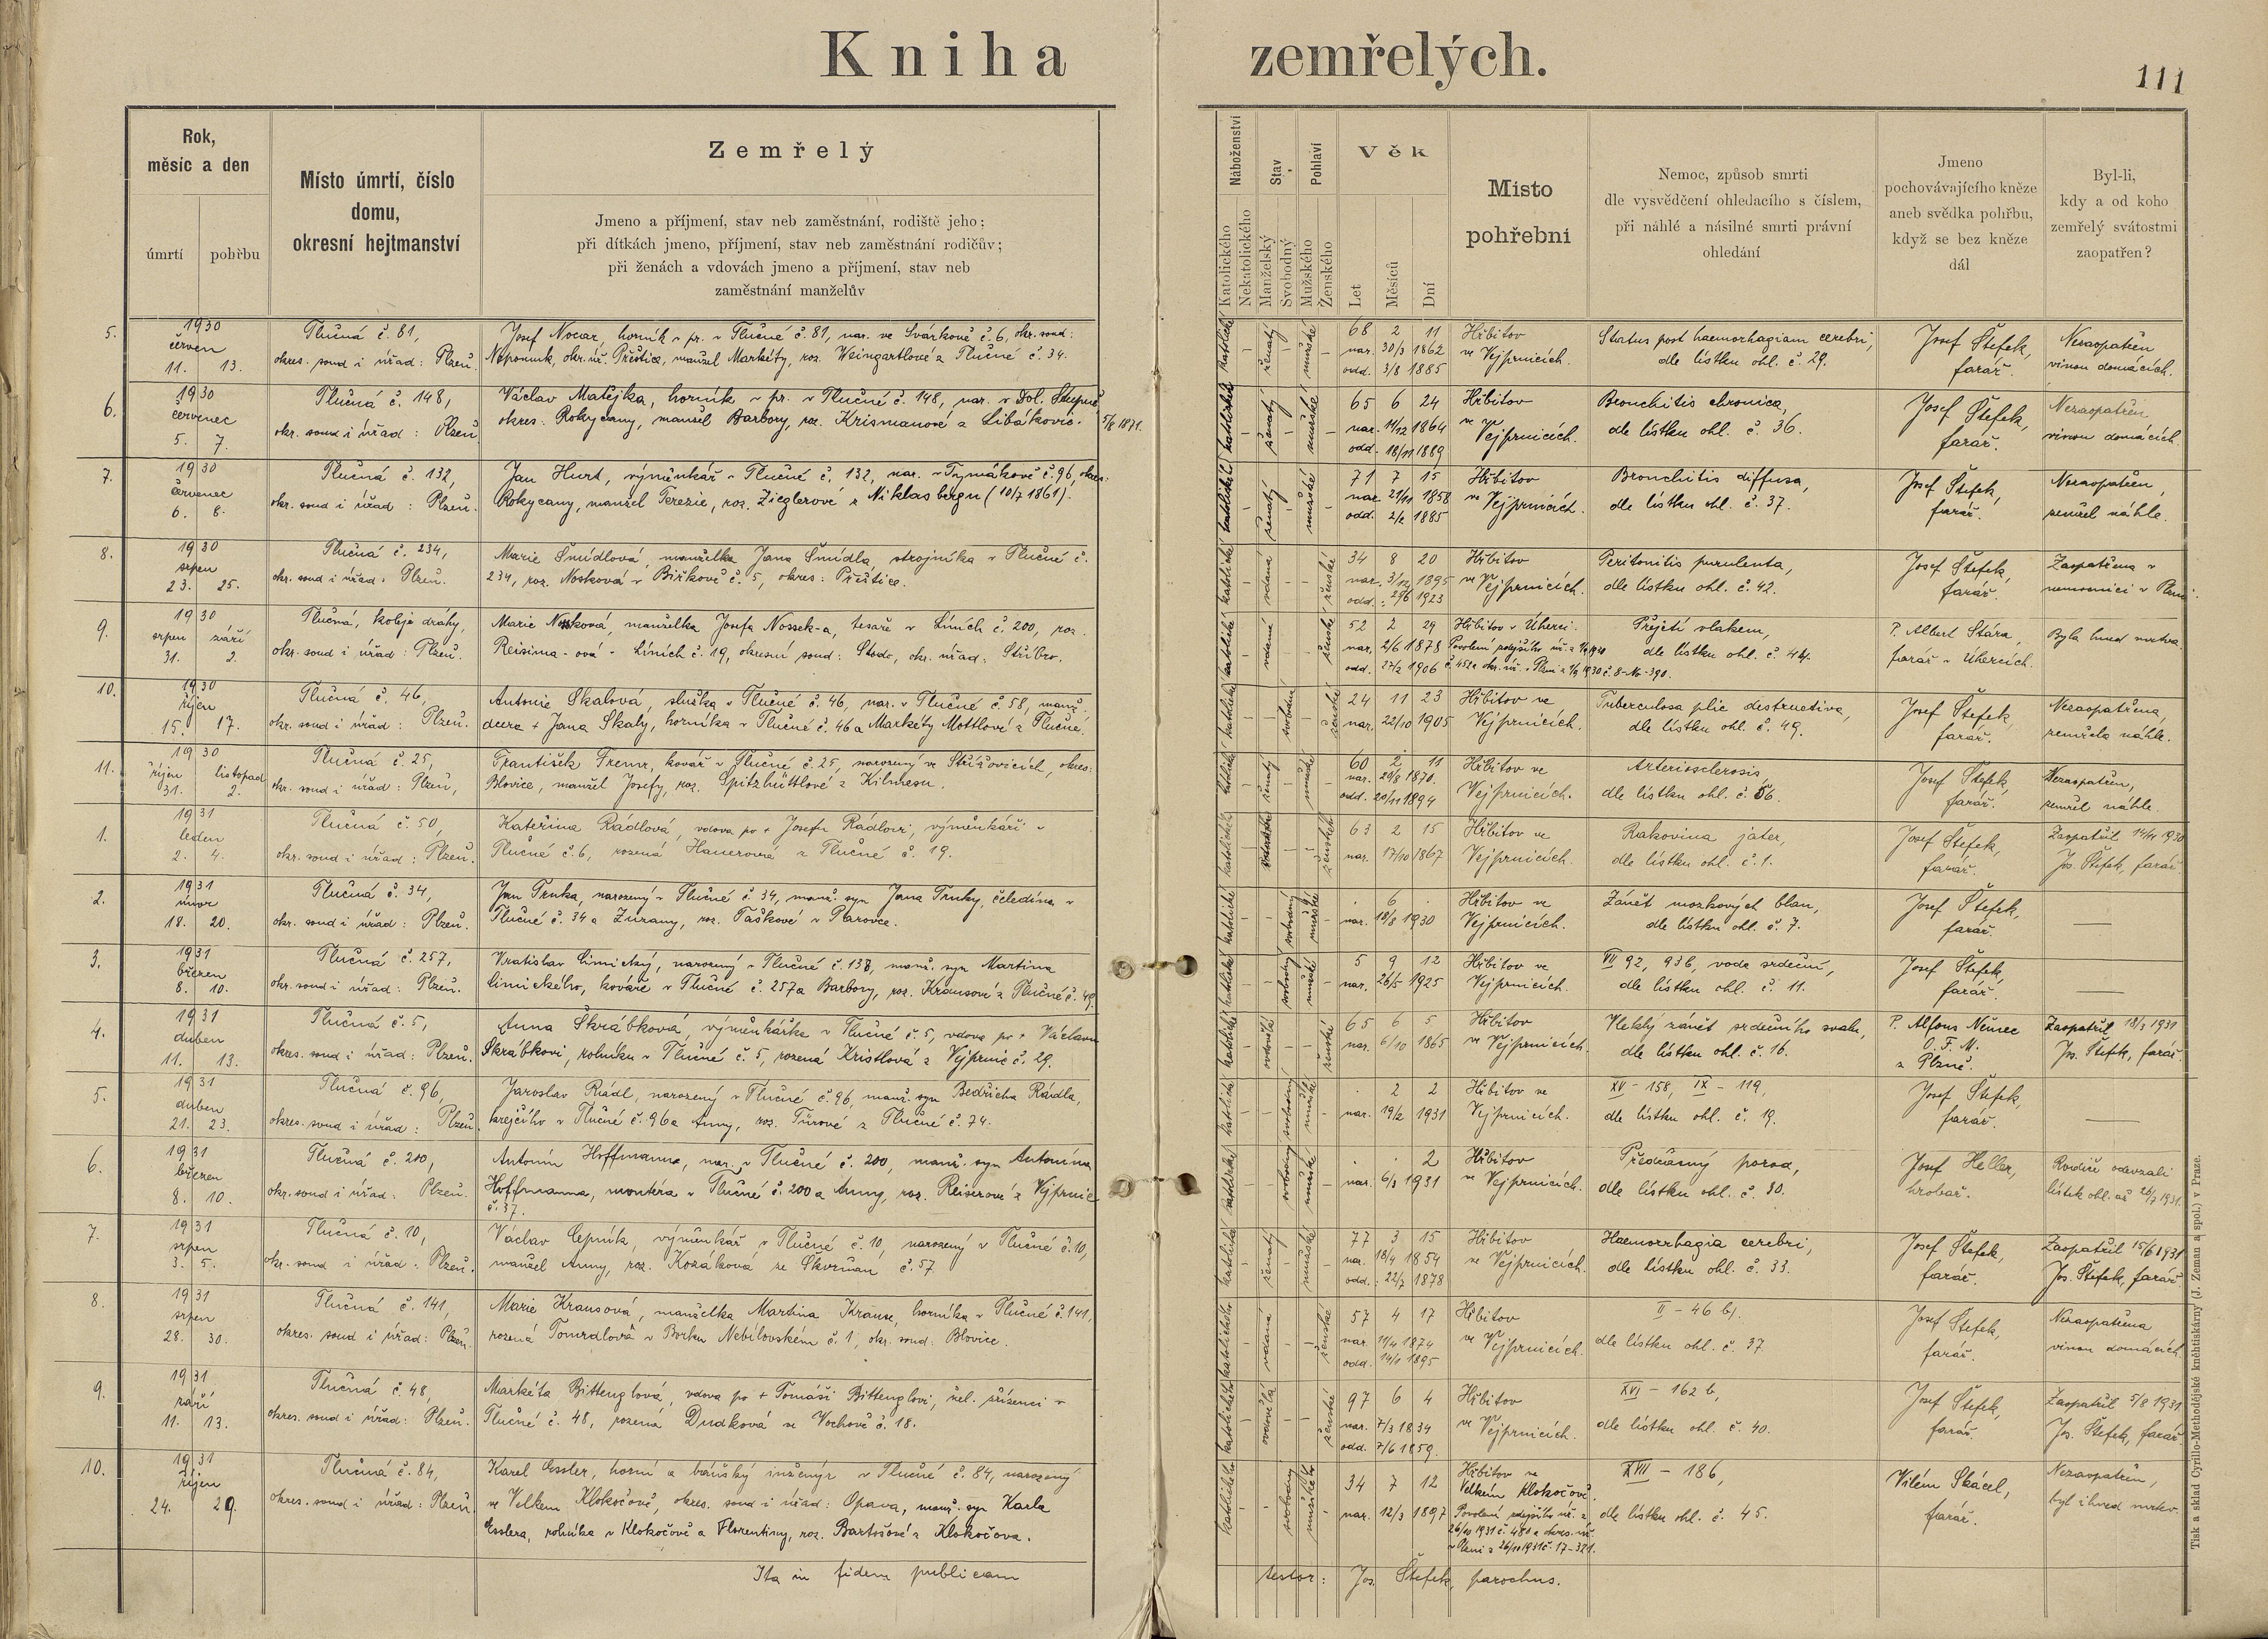 Kniha zemřelých.
111
Rok,
měsíc a den
úmrtí
pohřbu
Místo úmrtí, číslo
domu,
okresní hejtmanství
Zemřelý
Jmeno a příjmení, stav neb zaměstnání, rodiště jeho;
při dítkách jmeno, příjmení, stav neb zaměstnání rodičův;
při ženách a vdovách jmeno a příjmení, stav neb
zaměstnání manželův
Náboženství
Katolického
Nekatolického
Stav
Manželský
Svobodný
Pohlaví
Mužského
Ženského
Věk
Let
Měsíců
Dní
Místo
pohřební
Nemoc, způsob smrti
dle vysvědčení ohledacího s číslem,
při náhlé a násilné smrti právní
ohledání
Jmeno
pochovávajícího kněze
aneb svědka pohřbu,
když se bez kněze
dál
Byl-li,
kdy a od koho
zemřelý svátostmi
zaopatřen?
5.
1930
červen
11. 13.
Tlučná č. 81,
okres. soud i úřad: Plzeň.
Josef Nocar, horník v. pr. v Tlučné č. 81, nar. ve Svárkově č. 6, okr. soud:
Nepomuk, okr. úř. Přeštice, manžel Markéty, roz. Weingartlové z Tlučné č. 34.
katolické
ženatý
mužské
68 2 11
nar. 30/3 1862
odd. 3/8 1885
Hřbitov
ve Vejprnicích.
Status post haemorhagiam cerebri,
dle lístku ohl. č. 29.
Josef Štefek,
farář.
Nezaopatřen
vinou domácích.
6.
1930
červenec
5. 7.
Tlučná č. 148,
okr. soud i úřad: Plzeň
Václav Matějka, horník v. pr. v Tlučné č. 148, nar. v Dol. Stupně,
okres. Rokycany, manžel Barbory, roz. Krismanové z Libákovic. 5/8 1871.
katolické
ženatý
mužské
65 6 24
nar. 11/12 1864
odd. 18/11 1889
Hřbitov
ve Vejprnicích.
Bronchitis chronica,
dle lístku ohl. č. 36.
Josef Štefek,
farář.
Nezaopatřen
vinou domácích
7.
1930
červenec
6. 8.
Tlučná č. 132,
okr. soud i úřad: Plzeň.
Jan Hurt, výměnkář v Tlučné č. 132, nar. v Tymákově č. 96, okres:
Rokycany, manžel Terezie, roz. Zieglerové z Niklasbergu (10/7 1861).
katolické
ženatý
mužské
71 7 15
nar. 21/11 1858
odd. 2/2 1885
Hřbitov
ve Vejprnicích.
Bronchitis diffusa,
dle lístku ohl. č. 37.
Josef Štefek,
farář.
Nezaopatřen,
zemřel náhle.
8.
1930
srpen
23. 25.
Tlučná č. 234,
okr. soud i úřad: Plzeň.
Marie Šmídlová, manželka Jana Šmídla, strojníka v Tlučné č.
234, roz. Nosková v Biřkově č. 5, okres: Přeštice.
katolické
vdaná
ženské
34 8 20
nar. 3/12 1895
odd.: 29/6 1923
Hřbitov
ve Vejprnicích.
Peritonitis purulenta,
dle lístku ohl. č. 42.
Josef Štefek,
farář.
Zaopatřena v
nemocnici v Plzni.
9.
1930
srpen září
31. 2.
Tlučná, koleje dráhy,
okr. soud i úřad: Plzeň.
Marie Nosková, manželka Josefa Nossek-a, tesaře v Líních č. 200, roz.
Reisima-ová v Líních č. 19, okresní soud: Stodo, okr. úřad: Stříbro.
katolické
vdaná
ženské
52 2 29
nar. 2/6 1878
odd. 27/2 1906
Hřbitov v Úherci.
Povolení zdejšího úř. z 1/9 1930
č. 452 a okr. úř. v Plzni z 1/9 1930 č. 8-No-390.
Přejetí vlakem,
dle lístku ohl. č. 44.
P. Albert Stára,
farář v Úhercích.
Byla hned mrtva.
10.
1930
říjen
15. 17.
Tlučná č. 46,
okr. soud i úřad: Plzeň.
Antonie Skalová, služka v Tlučné č. 46, nar. v Tlučné č. 58, manž.
dcera + Jana Skaly, horníka v Tlučné č. 46 a Markéty Mottlové z Tlučné.
katolické
svobodná
ženské
24 11 23
nar. 22/10 1905
Hřbitov ve
Vejprnicích.
Tuberculosa plic destructiva,
dle lístku ohl. č. 49.
Josef Štefek,
farář.
Nezaopatřena,
zemřela náhle.
11.
1930
říjen listopad
31. 2.
Tlučná č. 25,
okr. soud i úřad: Plzeň,
František Tremr, kovář v Tlučné č. 25, narozený ve Střížovicích, okres:
Blovice, manžel Josefy, roz. Spitzhüttlové z Kilmesu.
katolické
ženatý
mužské
60 2 11
nar. 20/8 1870.
odd. 20/11 1894
Hřbitov ve
Vejprnicích.
Arteriosclerosis,
dle lístku ohl. č. 56.
Josef Štefek,
farář.
Nezaopatřen,
zemřel náhle.
1.
1931
leden
2. 4.
Tlučná č. 50,
okr. soud i úřad: Plzeň.
Kateřina Rádlová, vdova po + Josefu Rádlovi, výměnkáři v
Tlučné č. 6, rozená Hauerová z Tlučné č. 19.
katolického
ženského
63 2 15
nar. 17/10 1867
Hřbitov ve
Vejprnicích.
Rakovina jater,
dle lístku ohl. č. 1.
Josef Štefek,
farář.
Zaopatřil 14/11 1930
Jos. Štefek, farář
2.
1931
únor
18. 20.
Tlučná č. 34,
okr. soud i úřad: Plzeň.
Jan Trnka, narozený v Tlučné č. 34, manž. syn Jana Trnky, čeledína v
Tlučné č. 34 a Zuzany, roz. Taškové v Parovce.
katolické
svobodný
mužské
. 6 .
nar. 18/8 1930
Hřbitov ve
Vejprnicích.
Zánět mozkových blan,
dle lístku ohl. č. 7.
Josef Štefek,
farář.
3.
1931
březen
8. 10.
Tlučná č. 257,
okr. soud i úřad: Plzeň.
Vratislav Limický, narozený v Tlučné č. 137, manž. syn Martina
Limického, kováře v Tlučné č. 257 a Barbory, roz. Krausové z Tlučné č. 49.
katolické
svobodný
mužské
5 9 12
nar. 26/5 1925
Hřbitov ve
Vejprnicích.
VII 92, 93b, voda srdeční,
dle lístku ohl. č. 11.
Josef Štefek,
farář.
4.
1931
duben
11. 13.
Tlučná č. 5,
okres. soud i úřad: Plzeň.
Anna Škrábková, výměnkářka v Tlučné č. 5, vdova po + Václavu
Škrábkovi, rolníku v Tlučné č. 5, rozená Kristlová z Vejprnic č. 29.
katolické
ovdovělá
ženské
65 6 5
nar. 6/10 1865
Hřbitov
ve Vejprnicích.
Vleklý zánět srdečního svalu,
dle lístku ohl. č. 16.
P. Alfons Němec
O. F. M.
z Plzně.
Zaopatřil 18/3 1931
Jos. Štefek, farář.
5.
1931
duben
21. 23.
Tlučná č. 96,
okres. soud i úřad: Plzeň.
Jaroslav Rádl, narozený v Tlučné č. 96, manž. syn Bedřicha Rádla,
krejčího v Tlučné č. 96 a Anny, roz. Tůrové z Tlučné č. 74.
katolické
svobodný
mužské
. 2 2
nar. 19/2 1931
Hřbitov ve
Vejprnicích.
XV - 158, IX - 119,
dle lístku ohl. č. 19.
Josef Štefek,
farář.
6.
1931
březen
8. 10.
Tlučná č. 200,
okr. soud i úřad: Plzeň.
Antonín Hoffmann, nar. v Tlučné č. 200, manž. syn Antonína
Hoffmanna, montéra v Tlučné č. 200 a Anny, roz. Reiserové z Vejprnic
č. 37.
katolické
svobodný
mužské
. . 2
nar. 6/3 1931
Hřbitov
ve Vejprnicích.
Předčasný porod,
dle lístku ohl. č. 30.
Josef Heller,
hrobař.
Rodiče odevzdali
lístek ohl. až 26/7 1931.
7.
1931
srpen
3. 5.
Tlučná č. 10,
okr. soud i úřad: Plzeň.
Václav Cepník, výměnkář v Tlučné č. 10, narozený v Tlučné č. 10,
manžel Anny, roz. Kozáková ze Skvrňan č. 57
katolické
ženatý
mužské
77 3 15
nar. 18/4 1854
odd.: 22/7 1878
Hřbitov
ve Vejprnicích.
Haemorrhagia cerebri,
dle lístku ohl. č. 33.
Josef Štefek,
farář.
Zaopatřil 15/6 1931
Jos. Štefek, farář.
8.
1931
srpen
28. 30.
Tlučná č. 141,
okres. soud i úřad: Plzeň.
Marie Krausová, manželka Martina Krause, horníka v Tlučné č. 141,
rozená Tomrdlová v Borku Nebílovském č. 1, okr. soud: Blovice.
katolického
vdaná
ženské
57 4 17
nar. 11/4 1874
odd. 14/1 1895
Hřbitov
ve Vejprnicích.
II - 46 b/.
dle lístku ohl. č. 37
Josef Štefek,
farář.
Nezaopatřena
vinou domácích.
9.
1931
září
11. 13.
Tlučná č. 48,
okres. soud i úřad: Plzeň.
Markéta Bittenglová, vdova po + Tomáši Bittenglovi, žel. zřízenci v
Tlučné č. 48, rozená Dudková ve Vochově č. 18.
katolického
ovdovělá
ženské
97 6 4
nar. 7/3 1834
odd. 7/6 1859.
Hřbitov
ve Vejprnicích.
XVI - 162 b,
dle lístku ohl. č. 40.
Josef Štefek,
farář.
Zaopatřil 5/8 1931
Jos. Štefek, farář.
10.
1931
říjen
24. 29.
Tlučná č. 84,
okres. soud i úřad: Plzeň
Karel Essler, horní a báňský inženýr v Tlučné č. 84, narozený
ve Velkém Klokočově, okres. soud i úřad: Opava, manž. syn Karla
Esslera, rolníka v Klokočově a Florentiny, roz. Bartošové z Klokočova.
katolického
svobodný
mužského
34 7 12
nar. 12/3 1897
Hřbitov ve
Velkém Klokočově.
Povolení zdejšího úř. z
26/10 1931 č. 480 a okres. úř.
v Plzni z 26/10 1931 č. 17-321.
XVII - 186,
dle lístku ohl. č. 45.
Vilém Skácel,
farář.
Nezaopatřen,
byl ihned mrtev.
Ita in fidem publicam
testor: Jos. Štefek, parochus.
Tisk a sklad Cyrillo-Methodějské knihtiskárny (J. Zeman a spol.) v Praze.